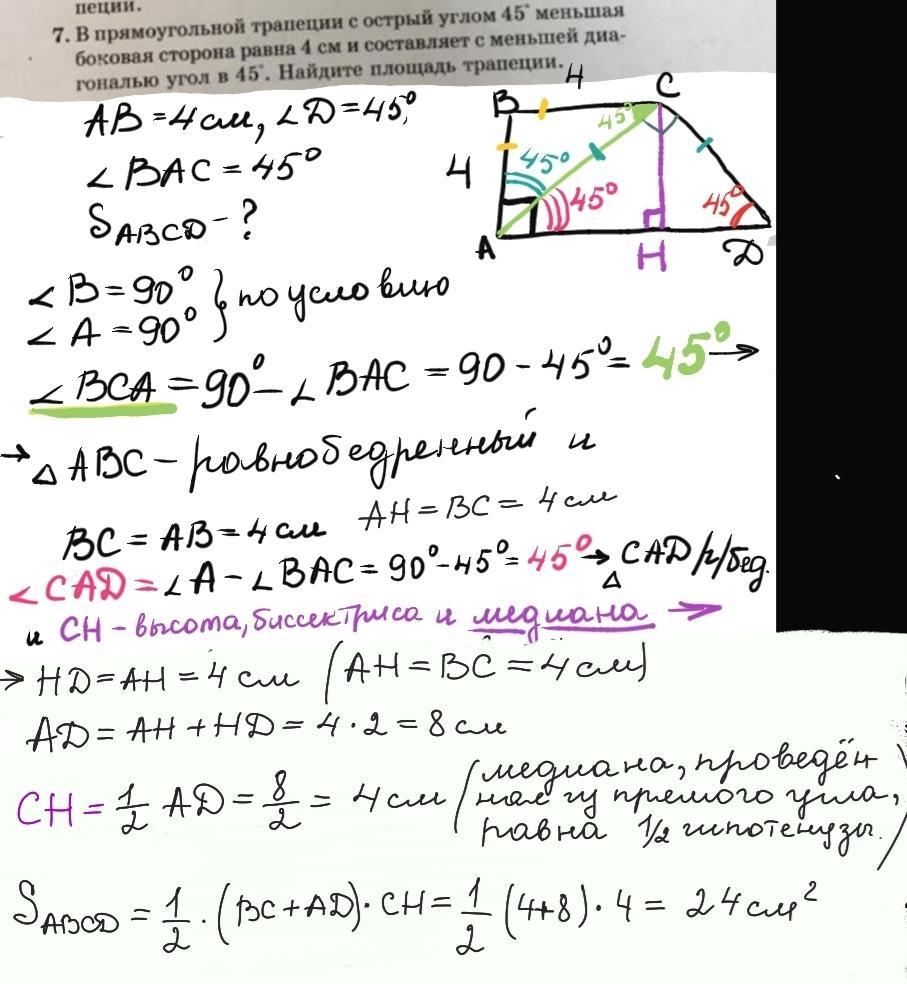 пеции.
7. В прямоугольной трапеции с острый углом 45° меньшая
боковая сторона равна 4 см и составляет с меньшей диа-
гональю угол в 45°. Найдите площадь трапеции.
AB = 4 см, ∠D = 45°,
∠BAC = 45°
S ABCD - ?
B 4 C
45°
4 45° 45° 45°
A H D
∠B = 90° } по условию
∠A = 90°
∠BCA = 90° - ∠BAC = 90 - 45° = 45° →
→ △ABC - равнобедренный и
BC = AB = 4 см AH = BC = 4 см
∠CAD = ∠A - ∠BAC = 90° - 45° = 45° → △CAD р/бед.
и CH - высота, биссектриса и медиана →
→ HD = AH = 4 см (AH = BC = 4 см)
AD = AH + HD = 4 · 2 = 8 см
CH = 1/2 AD = 8/2 = 4 см (медиана, проведён
ная из прямого угла,
равна 1/2 гипотенузы.)
S ABCD = 1/2 · (BC + AD) · CH = 1/2 (4+8) · 4 = 24 см²